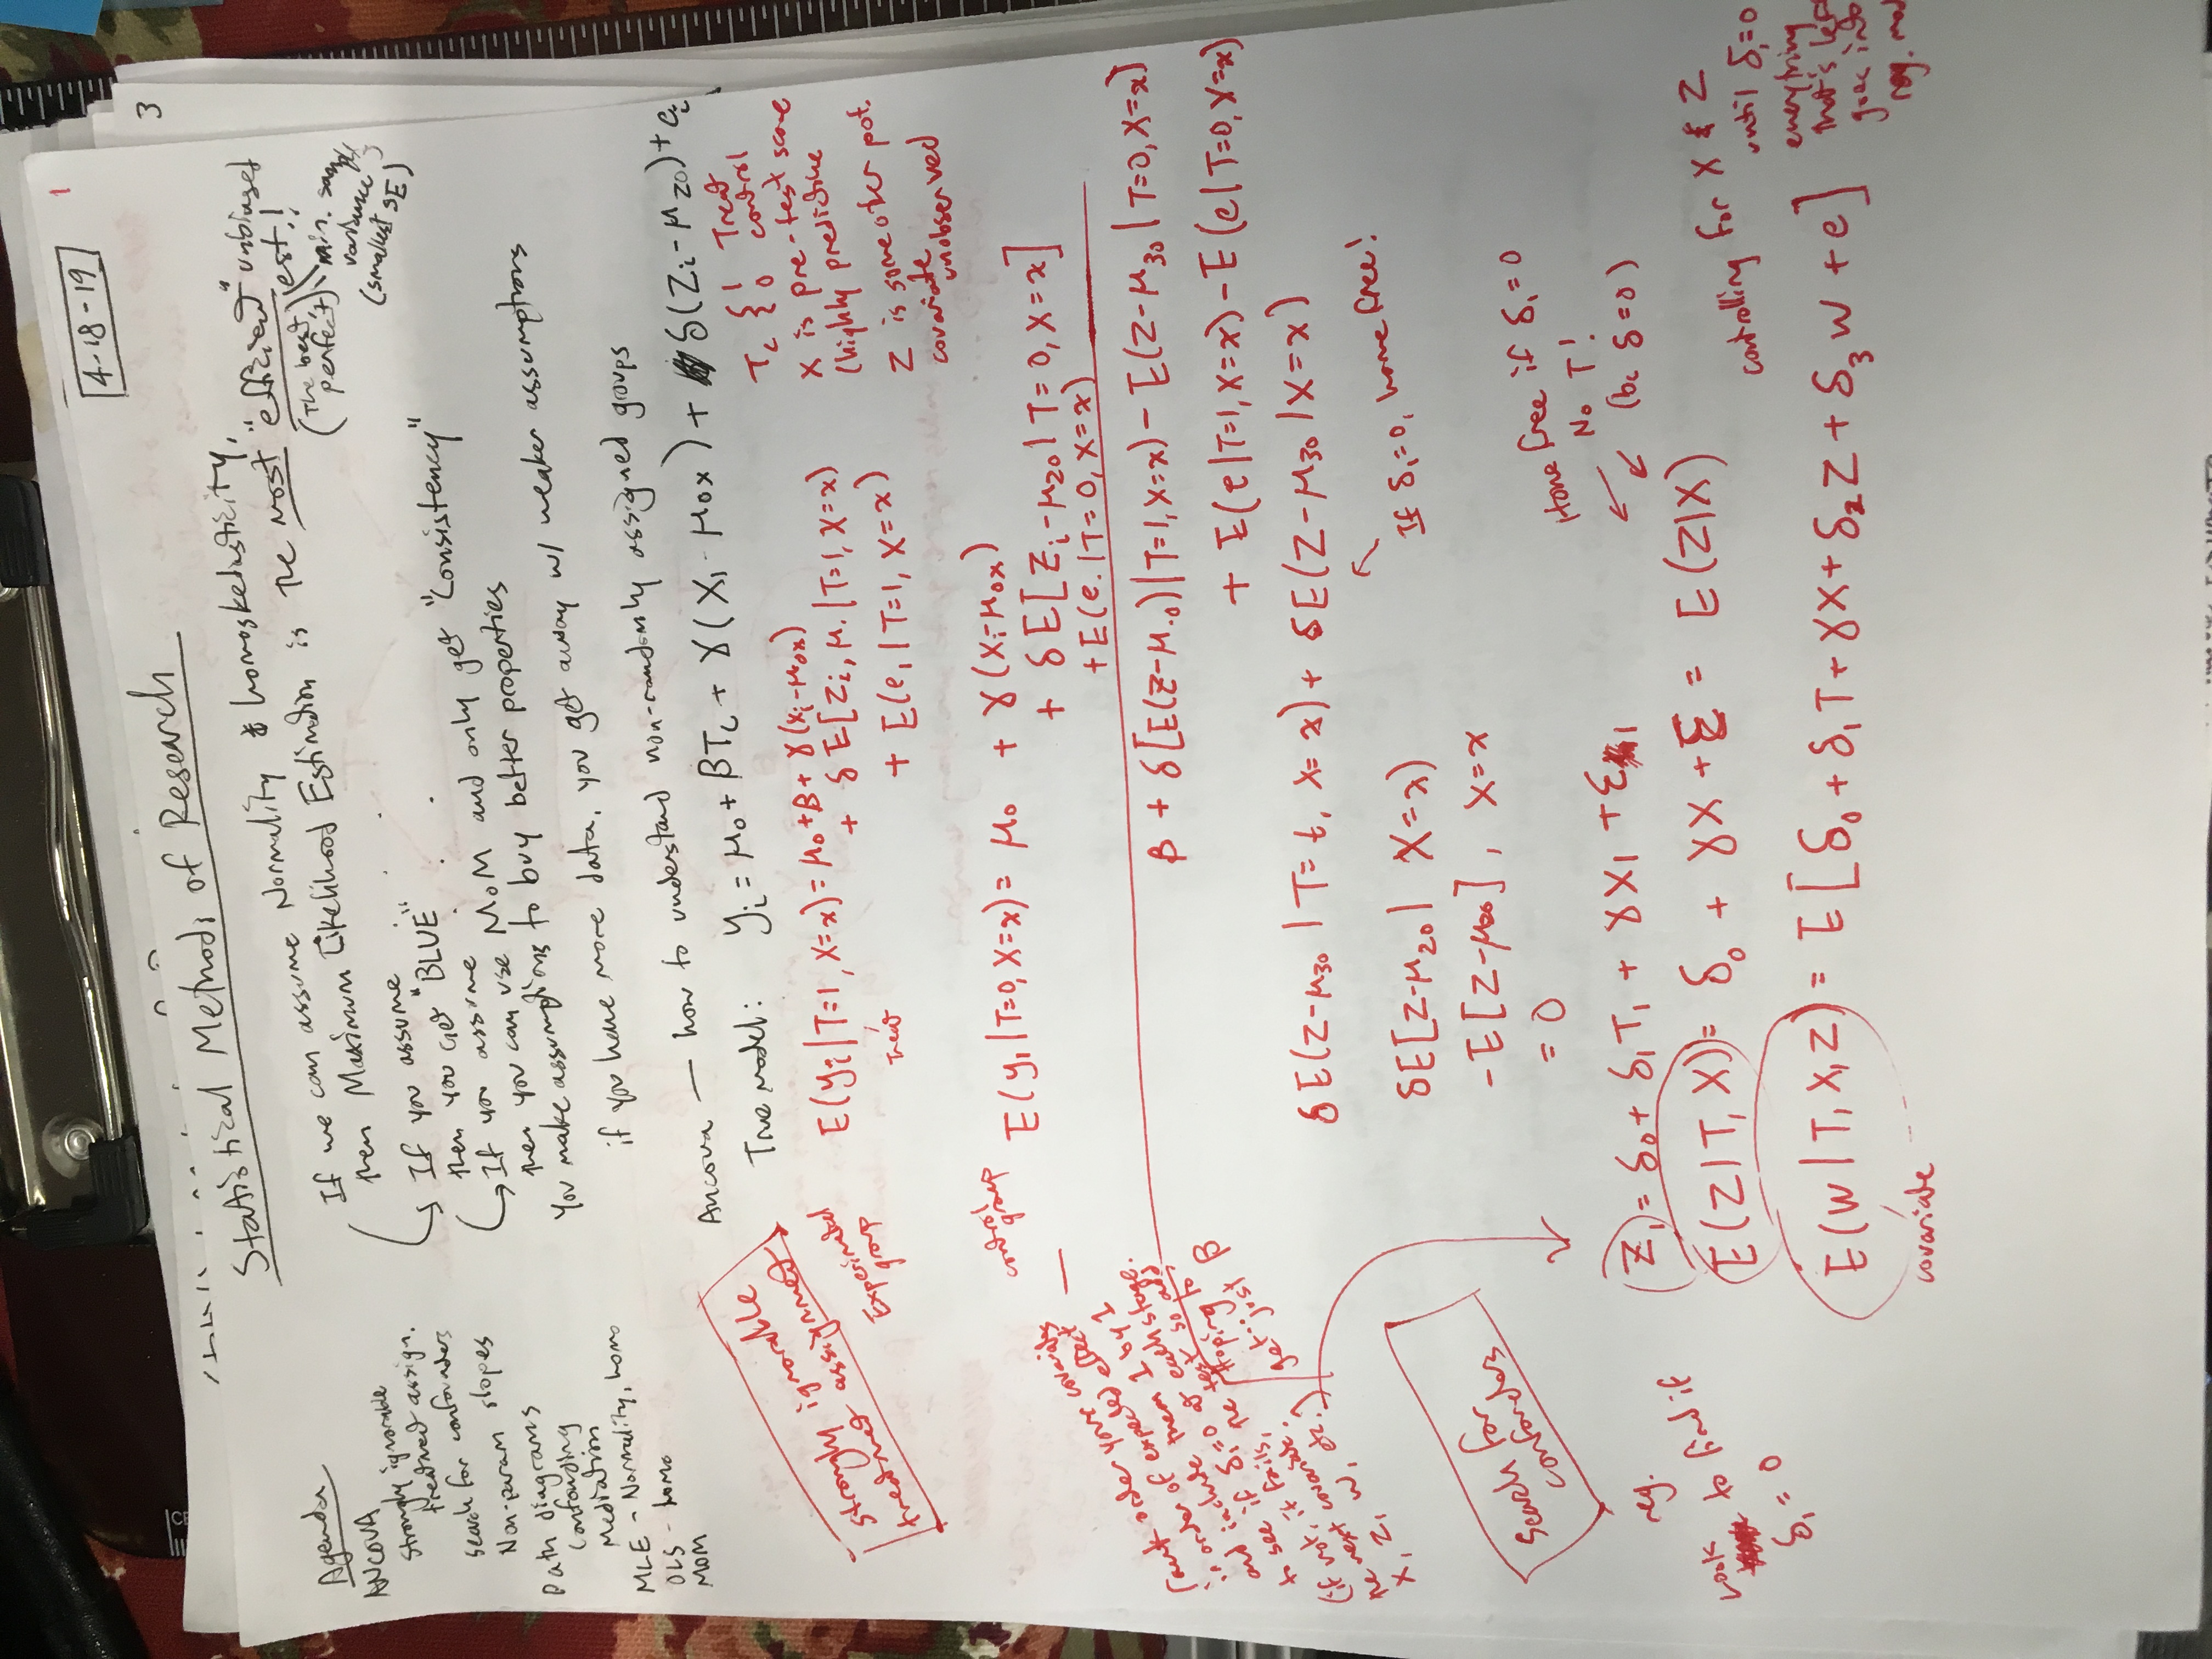 4-18-19
1
3
Statistical Methods of Research
Agenda
ANCOVA
Strongly ignorable
treatment assign.
search for confounders
Non-param slopes
Path diagrams
Confounding
Mediation
MLE - Normality, homo
OLS - homo
MOM
If we can assume Normality & homoskedasticity,
then Maximum Likelihood Estimation is the most "efficient" unbiased
est.!
(the best,
perfect)
min. sample
variance
(smallest SE)
If you assume
then you get "BLUE"
If you assume
then you can use MoM and only get "Consistency"
You make assumptions to buy better properties
if you have more data, you get away w/ weaker assumptions
Ancova — how to understand non-randomly assigned groups
True model: yi = μ0 + βTi + γ(Xi - μ0x) + δ(Zi - μz0) + ei
Ti { 1 Treat
0 control
X is pre-test score
(highly predictive
Z is some other pot.
covariate
unobserved
strongly ignorable
treatment assignment
Experimental
group
E(yi | T=1, X=x) = μ0 + β + γ(xi - μ0x)
+ δ E[Zi, μ. | T=1, X=x)
+ E(e, | T=1, X=x)
Treat
control
group
E(y, | T=0, X=x) = μ0 + γ(Xi - μ0x)
+ δE[Zi - μ20 | T=0, X=x]
+ E(e. | T=0, X=x)
rank order your covariates
in order of expected effect
and include them 1 by 1
to see if δ1=0 at each stage.
(if not, it fails, the test so add
the next covariate.
X, Z, W, etc.)
Hoping to
get... just β
β + δ[E(Z-μ.0)|T=1, X=x) - E(Z-μ30 | T=0, X=x)
+ E(e|T=1, X=x) - E(e|T=0, X=x)
δE(Z-μ30 | T=t, X=x) + δE(Z-μ30 | X=x)
If δ1=0, home free!
δE[Z-μ20 | X=x)
-E[Z-μ20], X=x
= 0
Search for
confounders
Home free if δ1=0
No T!
(bc δ=0)
Z1 = δ0 + δ1T1 + γX1 + ε1
reg.
Look to find if
δ1 = 0
E(Z|T, X) = δ0 + γX + ε = E(Z|X)
controlling for X & Z
until δ1=0
everything
that's left
goes into
reg. mod
E(W|T,X,Z) = E[δ0 + δ1T + γX + δ2Z + δ3W + e]
covariate